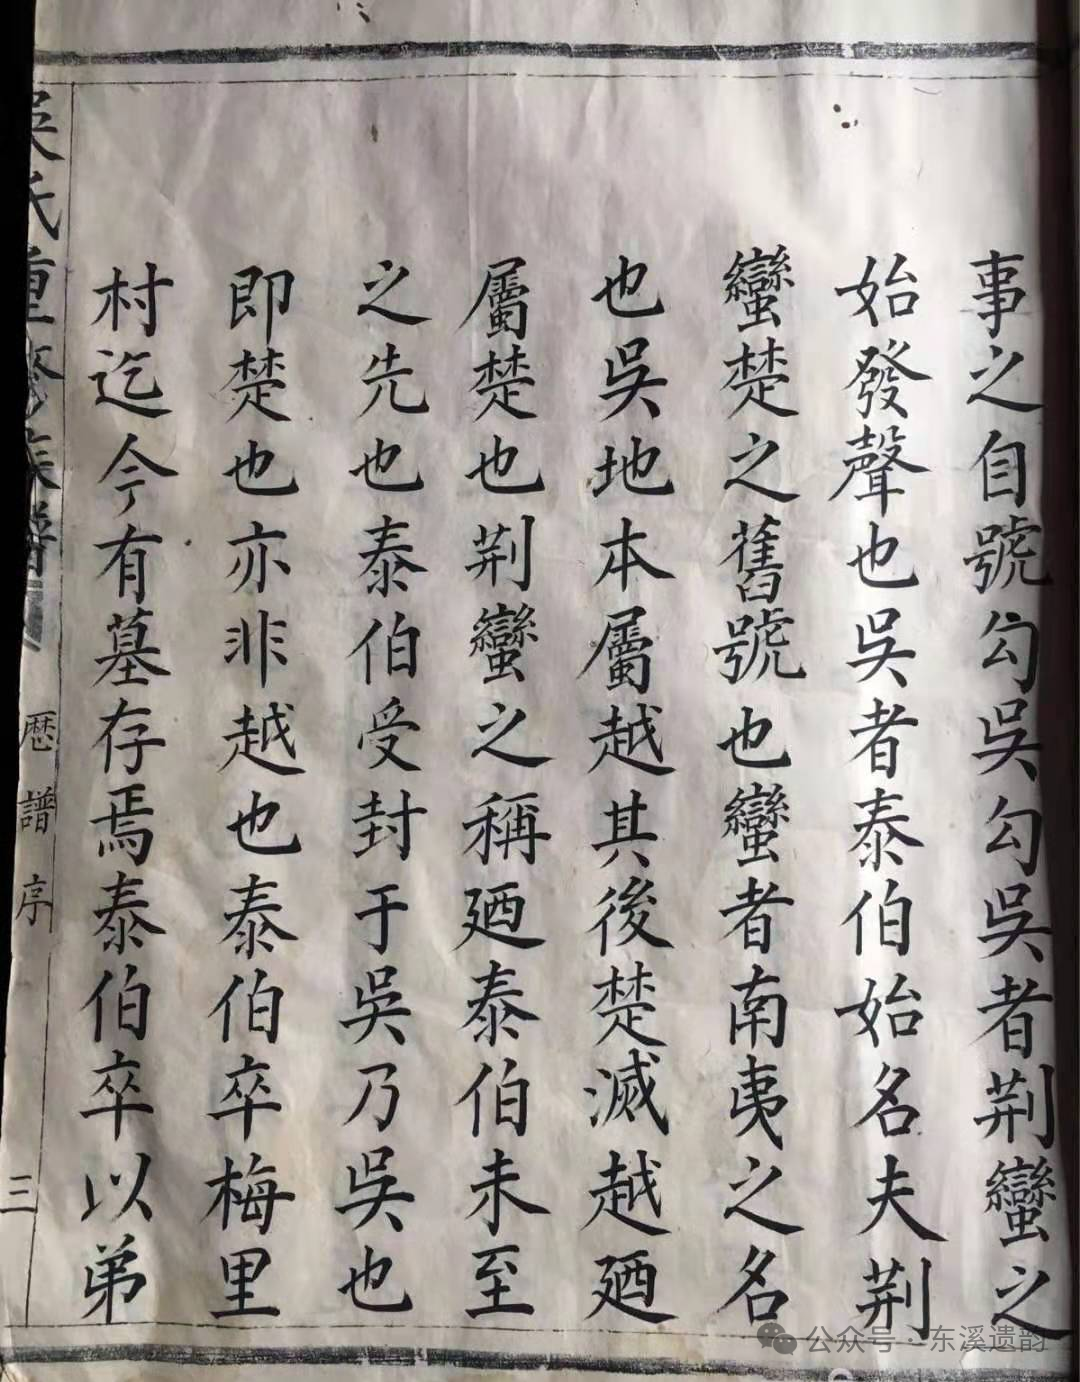 事之自號勾吳勾吳者荆蠻之
始發聲也吳者泰伯始名夫荆
蠻楚之舊號也蠻者南夷之名
也吳地本屬越其後楚滅越廼
屬楚也荆蠻之稱廼泰伯未至
之先也泰伯受封于吳乃吳也
即楚也亦非越也泰伯卒梅里
村迄今有墓存焉泰伯卒以弟
吳氏重修族譜
歷譜序
三
公众号·东溪遗韵